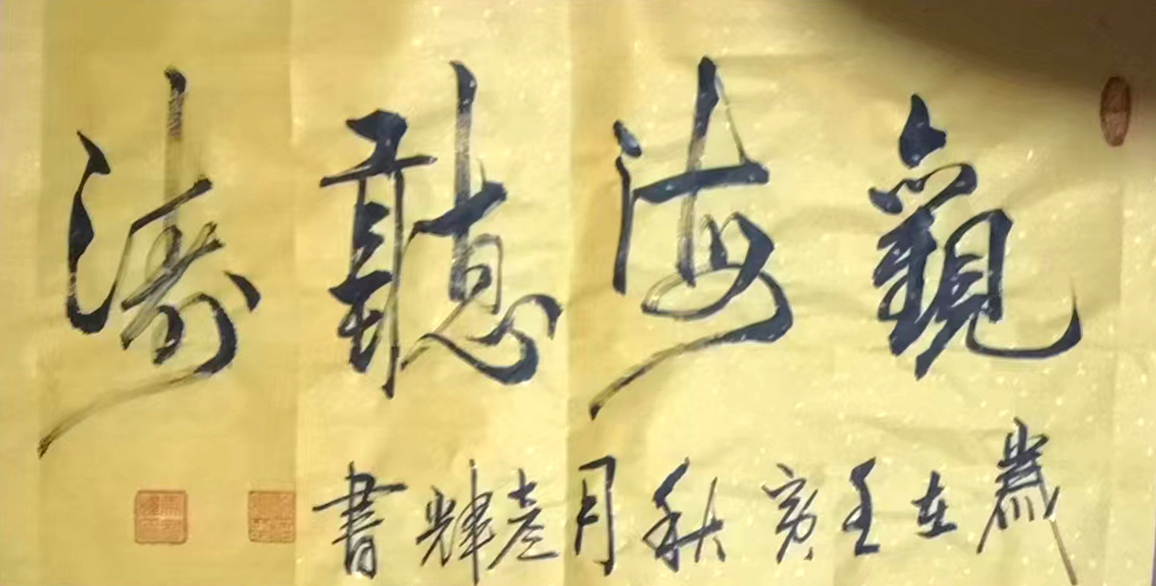 觀海聽濤
歲在壬寅秋月彦輝書